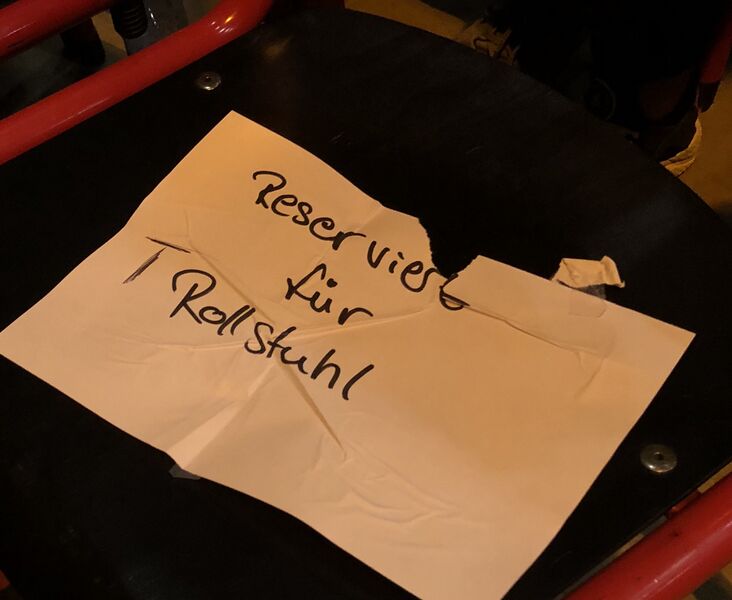 Reserviert
für
Rollstuhl